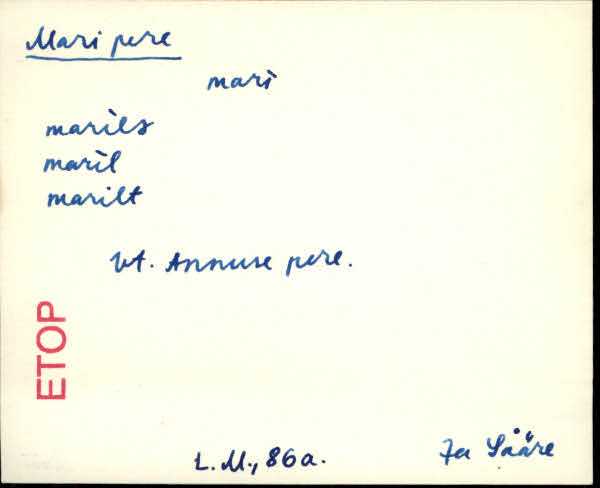 Mari pere
mari
marils
maril
marilt
Vt. Annuse pere.
ETOP
L.M., 86a.
Ja Sääre